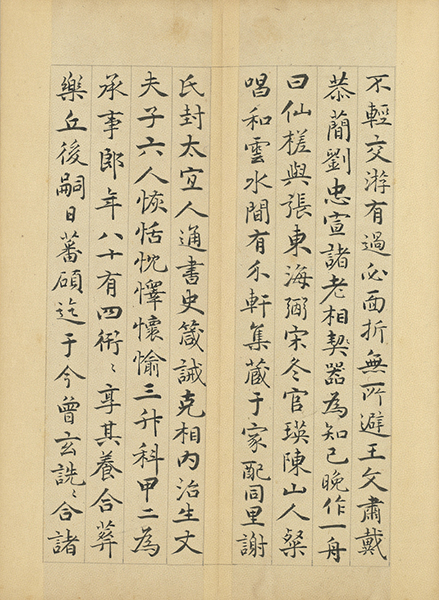 不輕交游有過必面折無所避王文肅戴
恭蕳劉忠宣諸老相契器為知己晚作一舟
曰仙槎與張東海弼宋冬官瑛陳山人粲
唱和雲水間有介軒集藏于家配同里謝
氏封太宜人通書史箴誡克相內治生丈
夫子六人恢恬忱懌懷愉三升科甲二為
承事郎年八十有四衎〻享其養合葬
樂丘後嗣日蕃碩迄于今曾玄詵〻合諸